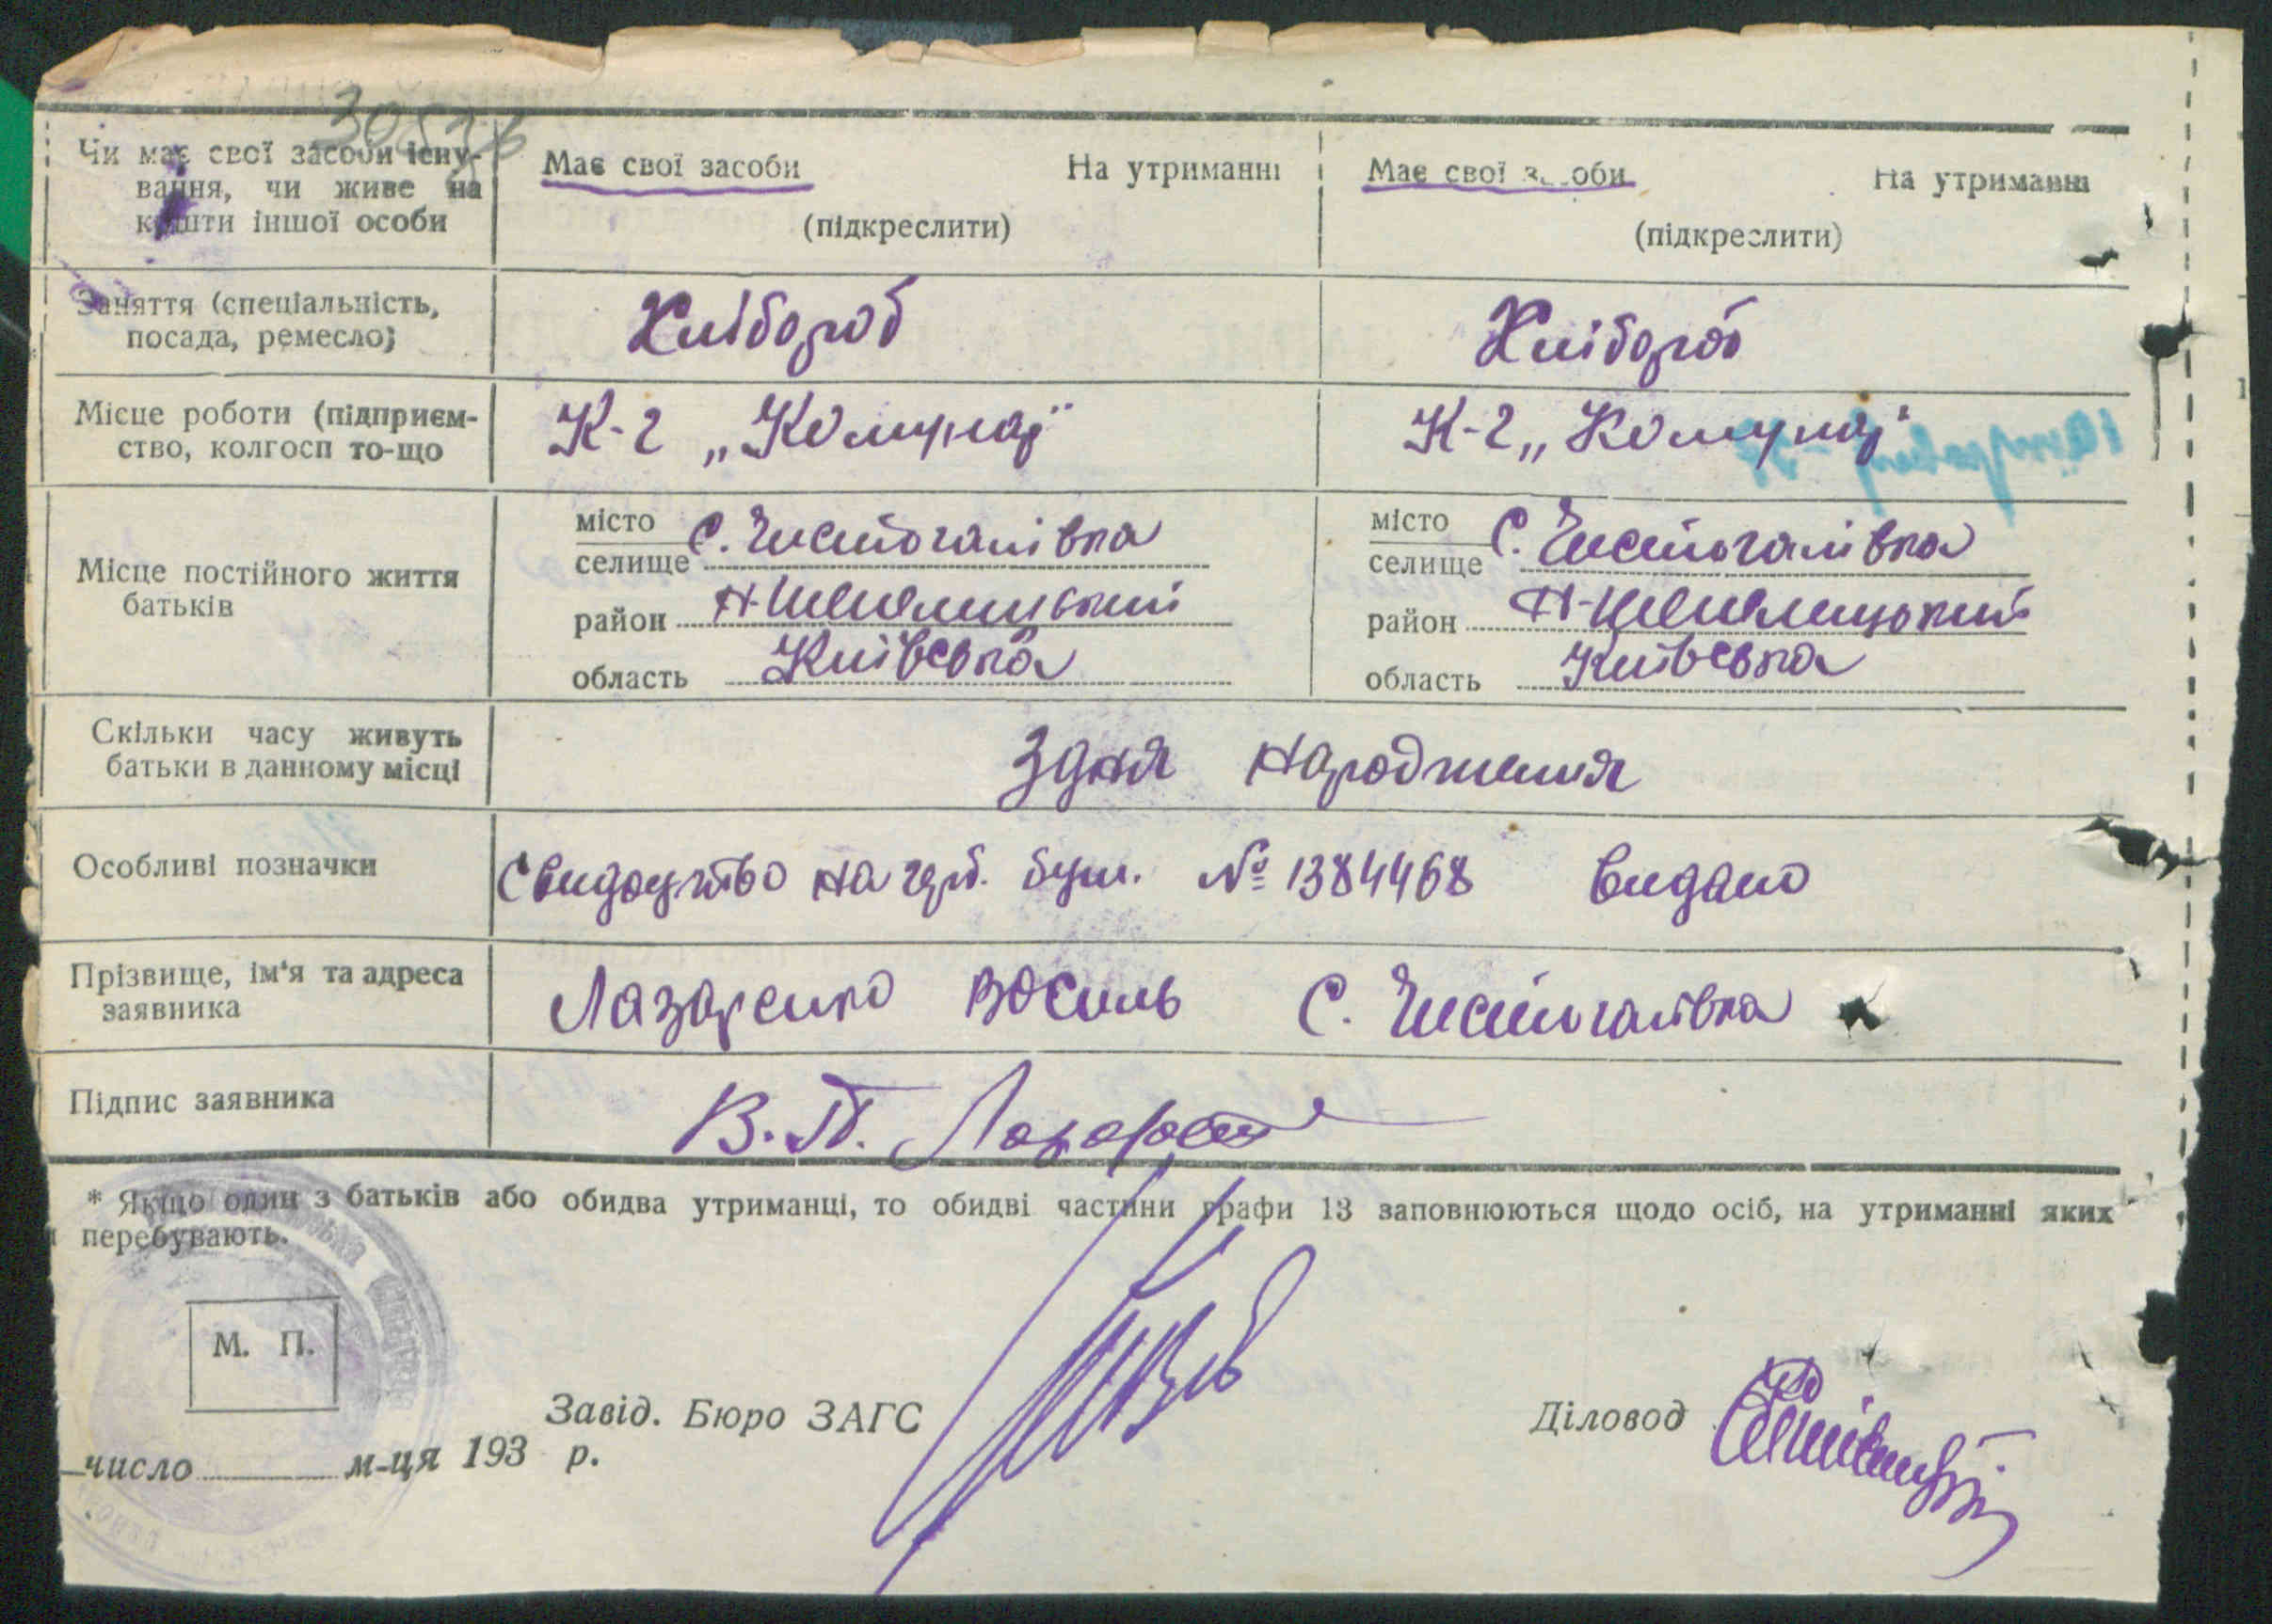 Чи має свої засоби існу-
вання, чи живе на
кошти іншої особи
Має свої засоби На утриманні
(підкреслити)
Має свої засоби На утриманні
(підкреслити)
Заняття (спеціальність,
посада, ремесло)
Хлібороб
Хлібороб
Місце роботи (підприєм-
ство, колгосп то-що
К-г „Комунар"
К-г „Комунар"
Місце постійного життя
батьків
місто
селище С. Чистогалівка
район Н-Шепелицький
область Київська
місто
селище С. Чистогалівка
район Н-Шепелицький
область Київська
Скільки часу живуть
батьки в данному місці
З дня народження
Особливі позначки
Свидоцтво на герб. бум. № 1384468 видано
Прізвище, ім'я та адреса
заявника
Лазаренко Василь С. Чистогалівка
Підпис заявника
В. П. Лазаренко
* Якщо один з батьків або обидва утриманці, то обидві частини графи 13 заповнюються щодо осіб, на утриманні яких
перебувають.
М. П.
Завід. Бюро ЗАГС
Діловод
число м-ця 193 р.